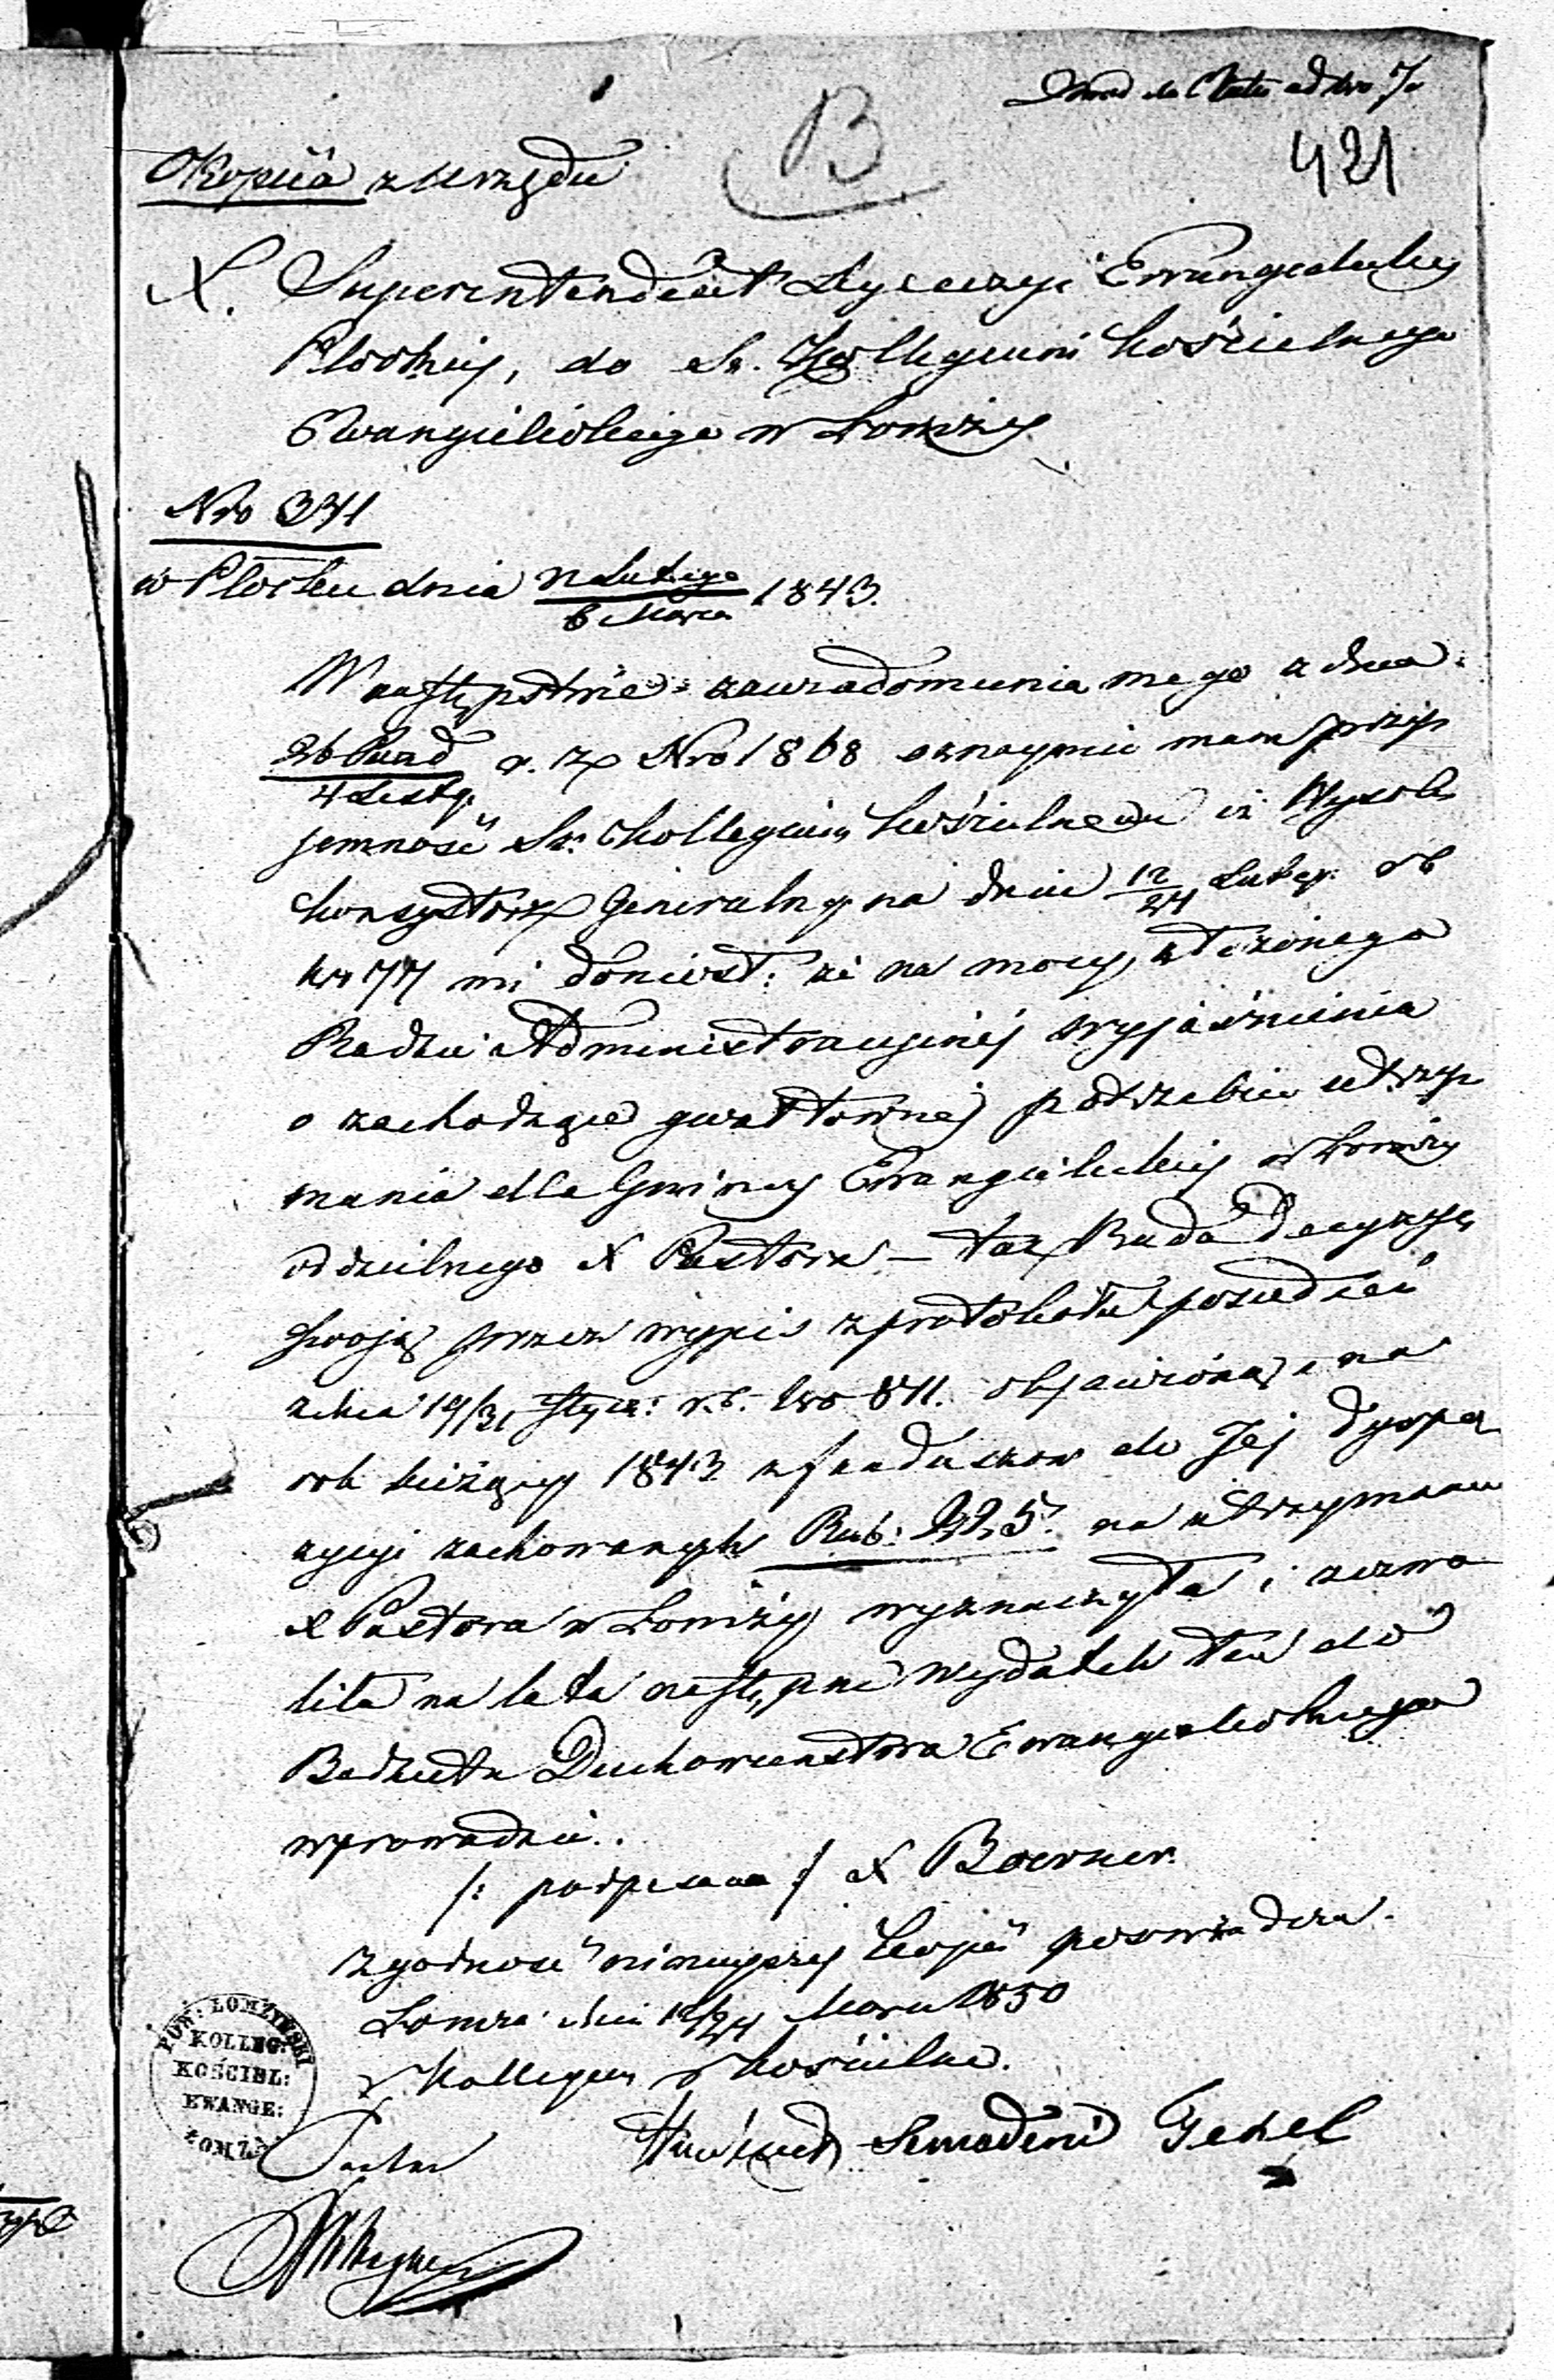 Dowod do Etatu ad Nro 7
421
B
Kopiia z urzędu
X. Superintendent Dyecezyi Ewangelickiej
Płockiej, do Sz. Kollegium Kościelnego
Ewangielickiego w Łomży
Nro 371
w Płocku dnia Lutego / 6 Marca 1843.
W następstwie zawiadomienia mego z dnia
26 Pazd / 4 Listop. r. z. Nro 1868 oznaymić mam przy
jemność Sz. Kollegium Kościelnemu iż Wysoki
Konsystorz Generalny na dniu 12/24 Lutego rb
Nr 77 mi doniosł: że na mocy złożonego
Radzie Administracyjnej wyjaśnienia
o zachodzące gwałtownej potrzebie utrzy
mania dla Gminy Ewangielickiej w Łomży
oddzielnego X Pastora – taż Rada decyzyą
swoją przez wypis z protokołu posiedzeń
z dnia 19/31 Stycz: r.b. Nro 871. objawioną, na
rok bieżący 1843 z funduszow do Jej dyspo
zycyi zachowanych Rub: 225. na utrzymanie
X Pastora w Łomży wyznaczyła i zezwo
liła na lata następne wydatek ten do
Budżetu Duchowieństwa Ewangelickiego
wprowadzić.
/: podpisano :/ X Boerner.
Zgodność niniejszej kopii poswiadcza.
Łomża dnia 12/24 Marca 1850
Kollegium Kościelne.
Pastor Semadeni Gekel
POW: ŁOMŻYNSKI
KOLLEG:
KOŚCIEL:
EWANGE:
ŁOMŻA